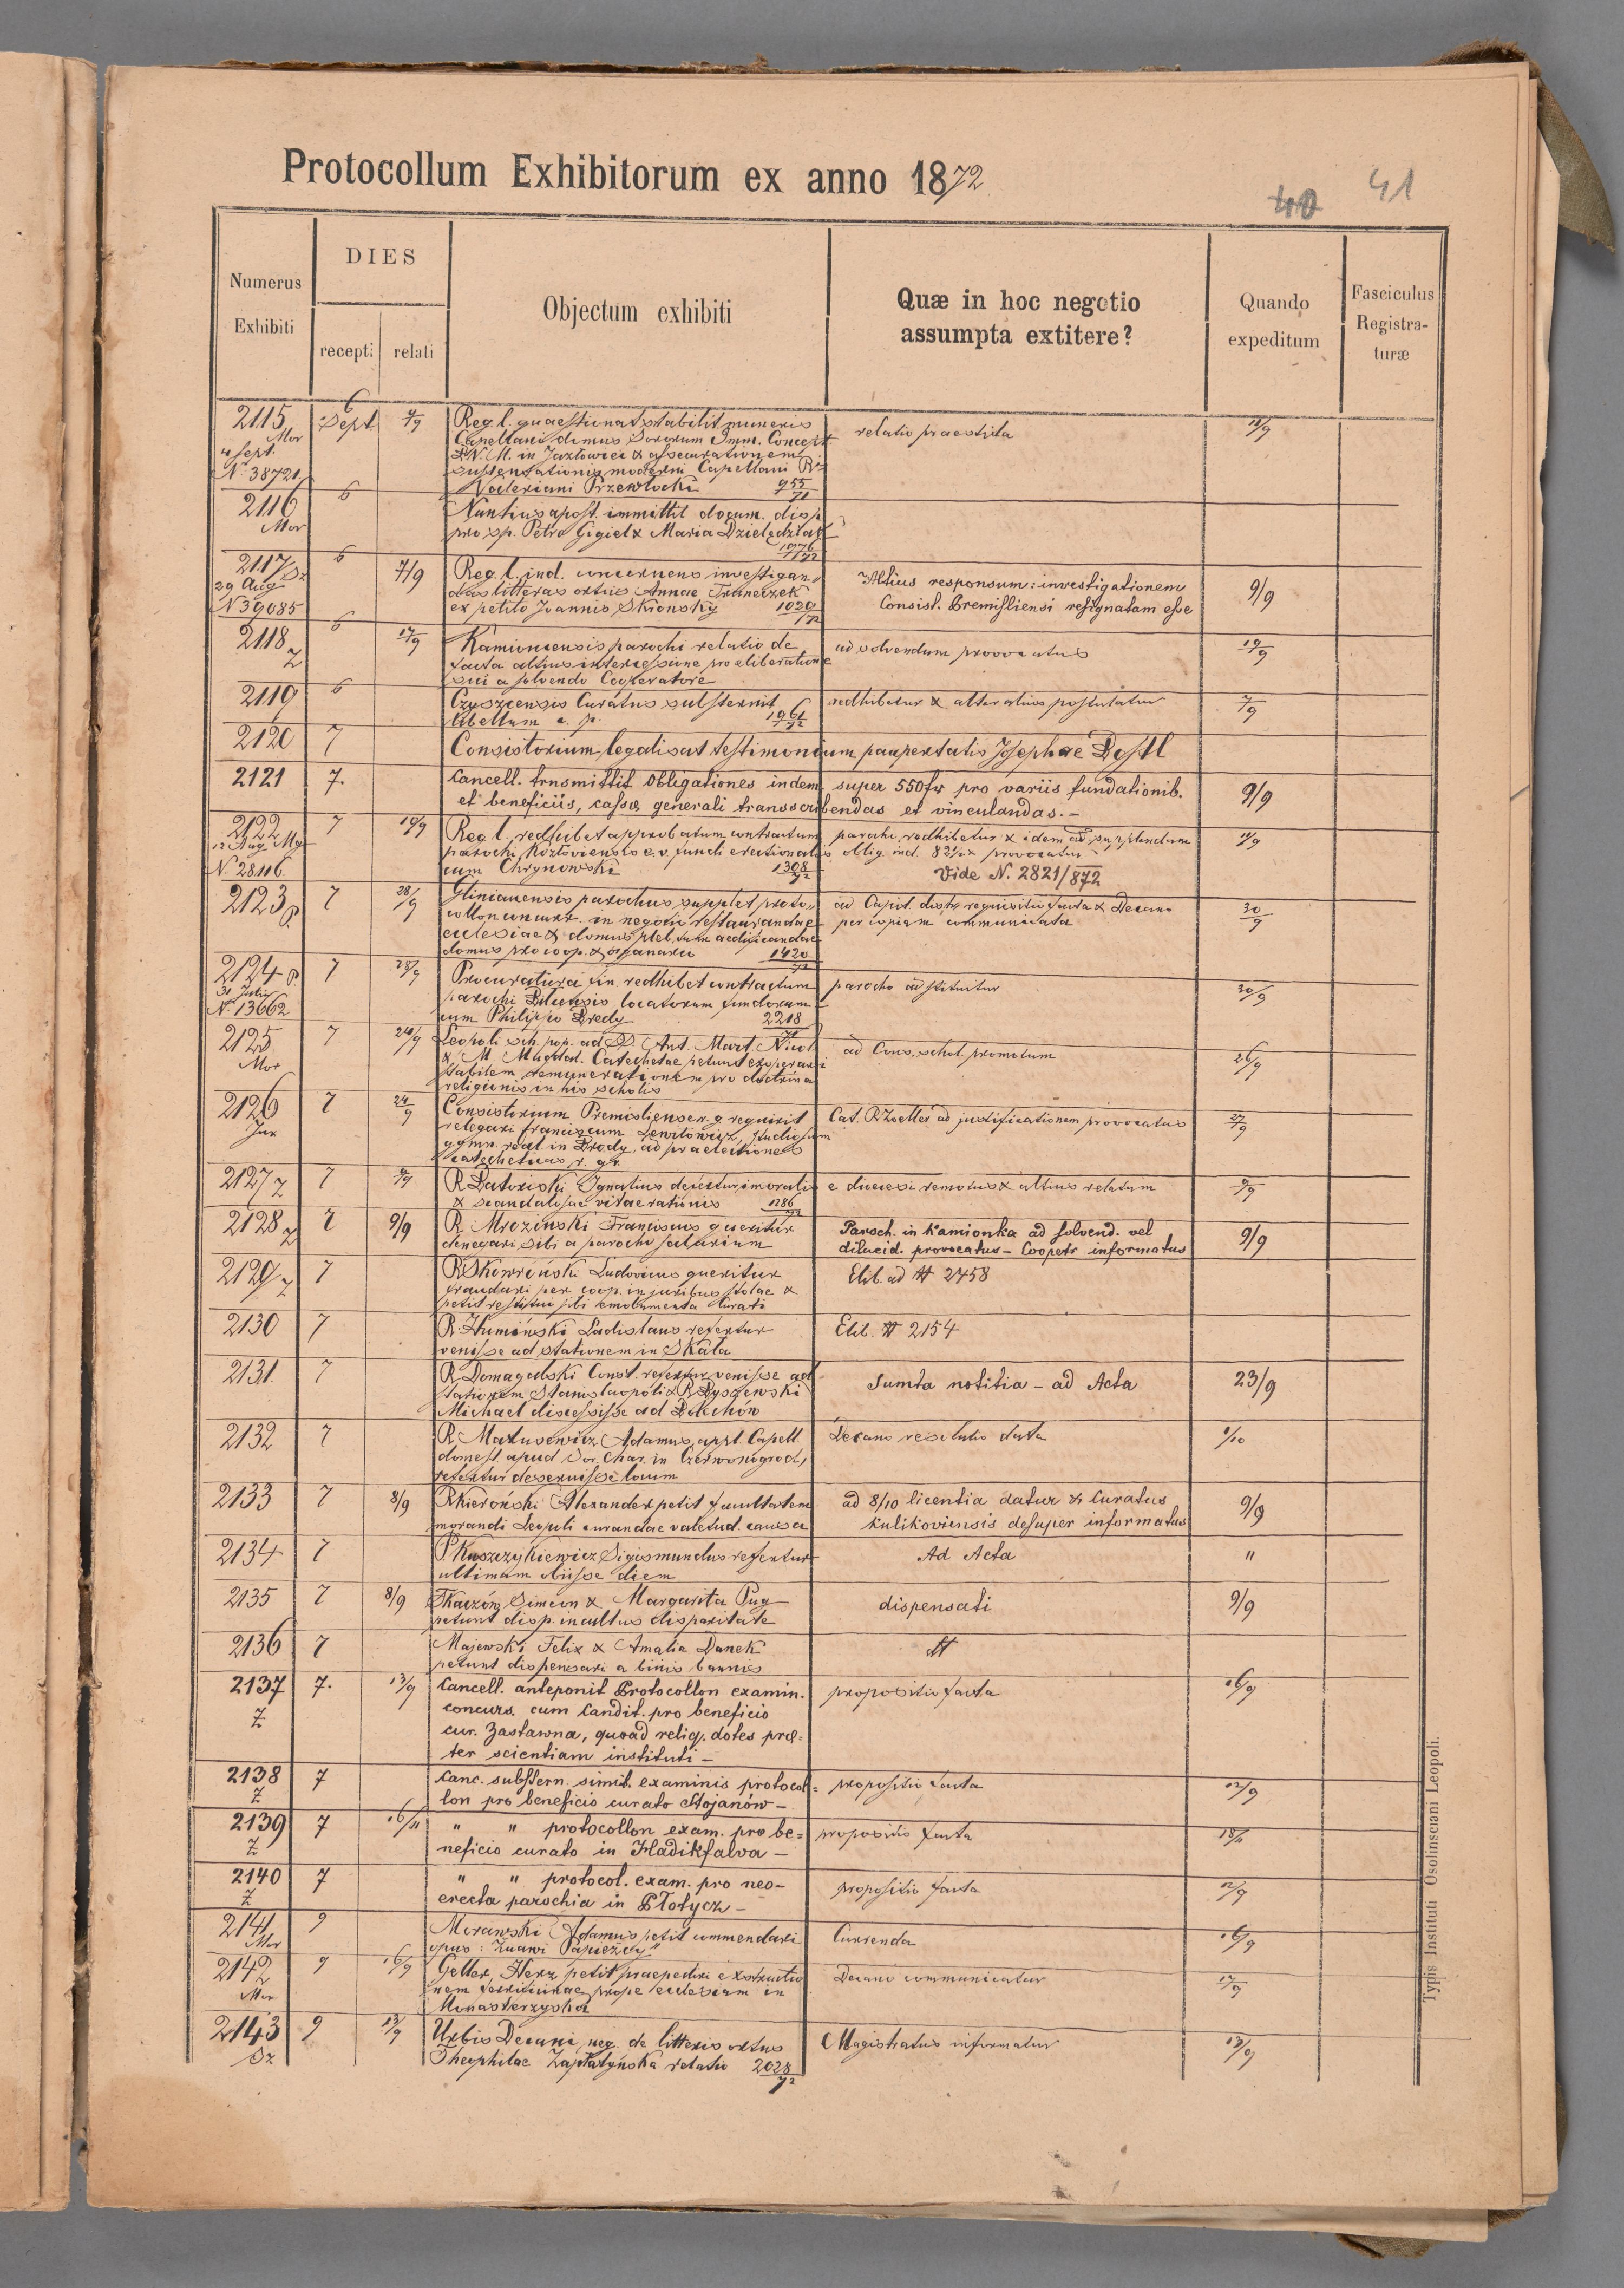 Protocollum Exhibitorum ex anno 1872
40 41
Numerus Exhibiti
DIES
recepti relati
Objectum exhibiti
Quæ in hoc negotio assumpta extitere?
Quando expeditum
Fasciculus Registra-turæ
2115 6 Sept. 9/9 Reg. l. quaestionat stabilit muneris relatio praestita 11/9
Mor Capellani domus Sororum Imm. Concept
4 Sept. B.V.M. in Jazłowiec & assecurationem
N. 38721 sustentationis moderni Capellani R.
Valeriani Przewłocki 955/71
2116 6 Nuntius apost. immittit docum. disp.
Mor pro sp. Petro Gigiel & Maria Dzielędziak
1076/72
2117 6 7/9 Reg. l. ind. concernens investigan- Altius responsum: investigationem 9/9
29 Aug das litteras ortus Annae Franeczek Consist. Premisliensi resignatam esse
N 39085 ex petito Joannis Skronsky 1020/72
2118 6 17/9 Kamioncensis parochi relatio de ad solvendum provocatus 19/9
Z facta altius intercessione pro eliberatione
sui a solvendo Cooperatore
2119 6 Czyszcensis Curatus substernit redhibetur & alter alius postulatur 7/9
libellum 1961/72
2120 7 Consistorium legalisat testimonium paupertatis Josephae Dostl
2121 7. Cancell. trnsmittit Obligationes indem super 550 fr pro variis fundationib. 9/9
et beneficiis, cassæ generali transscribendas et vinculandas.-
2122 7 10/9 Reg. l. redhibet approbatum contractum parocho redhibetur & idem ad supplendum 11/9
12 Aug parochi Kozłoviensis e. v. fundi erectionalis oblig. ind. provocatur
N. 28116 cum Chrynowski 1308/72 Vide N. 2821/872
2123 7 28/9 Glinianensis parochus supplet proto- ad Capit. distr. requisitio facta & Decano 30/9
P. collon concurr. in negotio restaurandae per copiam communicata
ecclesiae & domus pleb. tum aedificandae
domus pro coop. & organario 1420/72
2124 P. 7 28/9 Procuratura fin. redhibet contractum parocho adstituitur 30/9
31 Julii parochi Bilcensis locatorum fundorum
N. 13662 cum Philippo Bredy 2218
2125 7 24/9 Leopoli sch. pop. ad S. Ant. Mart. Nicol ad Cons. schol. promotum 26/9
Mor & M. Magdal. Catechetae petunt exoperari
stabilem remunerationem pro doctrina
religionis in his scholis
2126 7 24/9 Consistorium Premisliense r. g. requirit Cat. R. Zoeller ad justificationem provocatus 27/9
Jux relegari Franciscum Lewitowicz, studiosum
gymn. real. in Brody, ad praelectiones
catecheticas r. gr.
2127 Z 7 9/9 R. Batoriski Ignatius defertur imoralis e dioecesi remotus & altius relatum 9/9
& scandalosae vitae rationis 1286/72
2128 Z 7 9/9 R. Mroziński Franciscus queritur Paroch. in Kamionka ad solvend. vel 9/9
denegari sibi a parocho salarium dilucid. provocatus – Cooptr informatus
2129 Z 7 R. Skowroński Ludovicus queritur Elib. ad # 2458
fraudari per coop. in juribus stolae &
petit restitui sibi emolumenta Curati
2130 7 R. Humiński Ladislaus refertur Elib. # 2154
venisse ad stationem in Skała
2131 7 R. Domagalski Const. refertur venisse ad Sumta notitia – ad Acta 23/9
stationem Stanislaopoli & R. Łyszewski
Michael discessisse ad Bolechów
2132 7 R. Matusewicz Adamus, Capell. Decano resolutio data 1/10
domest. apud Sor. Char. in Czerwonogrod,
refertur deseruisse locum
2133 7 8/9 R. Kieroński Alexander petit facultatem ad 8/10 licentia datur & Curatus 9/9
morandi Leopoli curandae valetud. causa Kulikoviensis desuper informatus
2134 7 P. Kuszczykiewicz Sigismundus refertur Ad Acta "
ultimam obiisse diem
2135 7 8/9 Tkaczów Simeon & Margarita Pug dispensati 9/9
petunt disp. in cultus disparitate
2136 7 Majewski Felix & Amalia Danek #
petunt dispensari a binis bannis
2137 7. 13/9 Cancell. anteponit Protocollon examin. propositio facta 16/9
Z concurs. cum Candit. pro beneficio
cur. Zastawna, quoad relig. dotes præ-
ter scientiam instituti –
2138 7 Canc. substern. simil. examinis protocol- propositio facta 12/9
Z lon pro beneficio curato Stojanów –
2139 7 16/11 " " protocollon exam. pro be- propositio facta 18/11
Z neficio curato in Hadikfalva –
2140 7 " " protocol. exam. pro neo- propositio facta 12/9
Z erecta parochia in Płotycz –
2141 9 Morawski Adamus petit commendari Currenda 16/9
Mor opus: "Żuawi Papiezcy"
2142 9 16/9 Geller, Herz petit praepediri exstructio- Decano communicatur 17/9
Mor nem prope ecclesiam in
Monasterzyska
2143 9 13/9 Urbis Decani neg. de litteris ortus Magistratus informatur 13/9
Theophilae Zapłatyńska relatio 2028/72
Typis Instituti Osolinsciani Leopoli.